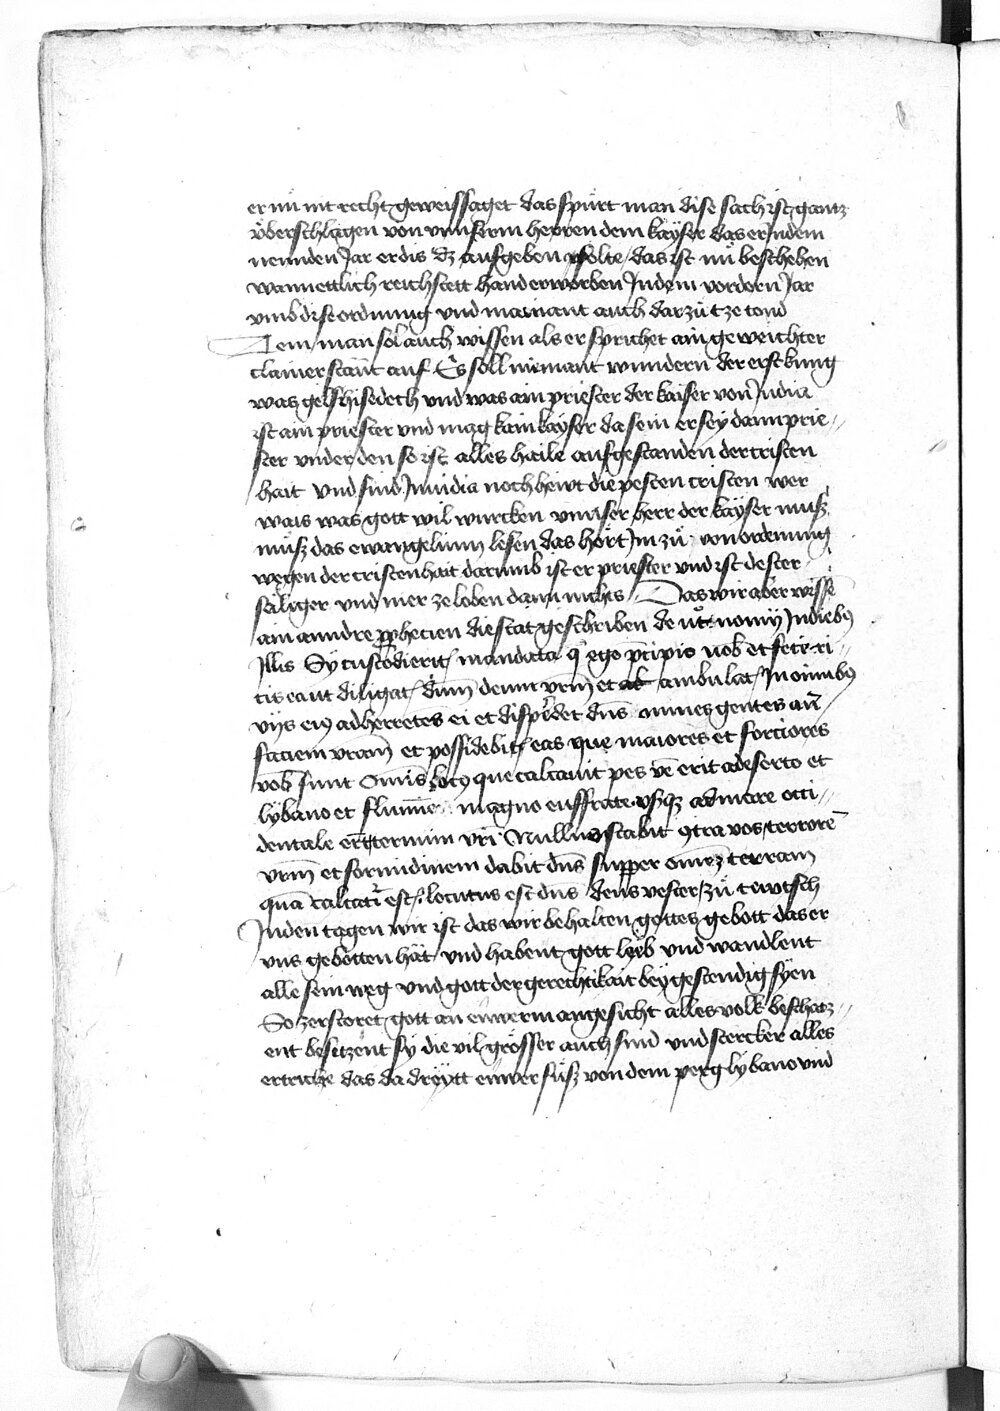 er nů nit recht geweissaget das spürt man dise sach ist gantz
v̈berschlagen von vnnserm herren dem kayser das er in dem
neunden Jar er dis dz aufgeben solte das ist nů beschehen
wann ettlich reichstett hand erworben In dem vordern Jar
vmb dise ordnung vnd mainant auch dar zů tze tond
Item man sol auch wissen als er sprichet ain geweichter
clainer staut auf Es soll niemant wundern der erst kunig
was gelshisedech vnd was ain priester der kaiser von India
ist ain priester vnd mag kain kayser da sein er sey dann prie//
ster vnder den so ist alles haile aufgestanden der cristen
hait vnd sind In india noch heiwt die pesten cristen wer
wais was gott wil wurcken vnnser herr der kayser můsz
můsz das ewangelium lesen das hört Im zů von ordenung
wegen der cristenhait darumb ist er priester vnd ist dester
säliger vnd mer ze loben dann nichis Das wir aber wissē
ain anndre ꝓphecien die stat geschriben deutronomij In dieb9
Illis Sy custodierit mandata q̄ ego p̄cipio vob et feceri//
tis ea ut diligat dūm deum vrm et ambulat In omnib9
vijs ei9 adherretes ei et disperdet dns omnes gentes an̄
faciem vram et possidebit eas que maiores et forciores
vob sunt Omis loc9 que calcauit pes vr̄ erit a deserto et
lybano et flumīe magno euffrate vsqz ad mare occi//
dentale erūt termini vri Nullus stabit 9tra vos terrorē
vrm et formidinem dabit dns supper omēz terram
quā calcaturi estis locutus est dns deus vester zů tewtsch
In den tagen wir ist das wir behalten gottes gebott das er
vns gebotten hät vnd habent gott lieb vnd wandlent
alle sein weg vnd gott der gerechtikait beygestendig syen
So zerstoret gott an ewerm angesicht alles volk beschatz//
ent besitzent sy die vil grösser auch sind vnd stercker alles
ertriche das da dreytt ewer füsz von dem perg lybano vnd